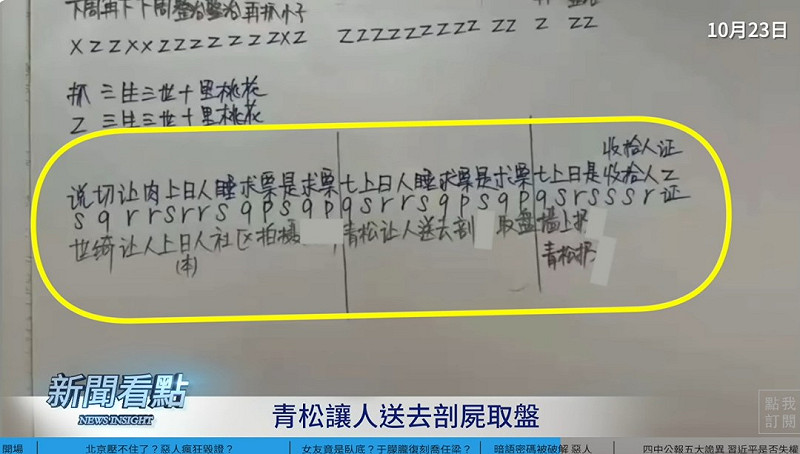 下周再下下周整治整治再抓小子
XZZXXZZZZZZZXZ ZZZZZZZZZZ ZZ Z ZZ
抓 三生三世十里桃花
Z 三生三世十里桃花
收拾人证
说切让肉上日人睡求票是求票七上日人睡求票是求票七上日是收拾人Z
s q r r s r r s q p s q p q s r r s q p s q p q s r s s s r 证
世绮让人上日人社区拍摄 青松让人送去剖 取盘墙上扔
(本) 青松扔
10月23日
新聞看點
NEWS INSIGHT
青松讓人送去剖屍取盤
點我
訂閱
開場 北京壓不住了？惡人瘋狂毀證？ 女友竟是臥底？于朦朧復刻喬任梁？ 暗語密碼被破解 惡人 四中公報五大詭異 習近平是否失權